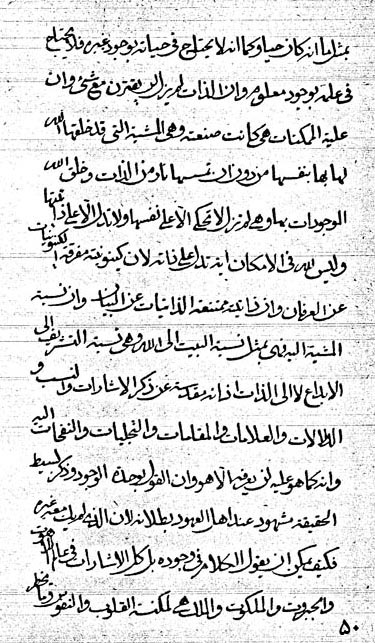 بمثل ما انه كان حيا وكما انه لا يحتاج فی حياته بوجود غيره فلا يحتاج
فی علمه بوجود معلوم وان الذات لم يزل لن يقترن مع شیء وان
علية الممكنات هی كانت صنعته وهی المشية التی قد خلقها الله
لها بها بنفسها من دون ان تمسها نار من الذات وخلق الله
الموجودات بها وهی لم تزل لا تحكی الا علی نفسها ولا تدل الا علی ذاتها
وليس لله فی الامكان اية تدل علی ذاته لان كينونيته مفرقة الكينونيات
عن العرفان وان ذاتيته ممتنعة الذاتيات عن البيان وان نسبة
المشية اليه فهی بمثل نسبة البيت الی الله وهی نسبة التشريف الی
الابداع لا الی الذات اذ انه مقدسة عن ذكر الاشارات والنسب و
الدلالات والعلامات والمقامات والتجليات والنفحات اليه
وانه كما هو عليه لن يعرفه الا هو وان القول بوحدة الوجود وذكر بسيط
الحقيقة مشهود عند اهل الشهود بطلانه لان الذی لم يك معه غيره
فكيف يمكن ان يقول الكلام فی وجوده بل كل الاشارات فی عالم
والجبروت والملكوت والملك هی لمكنة القلوب والنفوس
٥٠